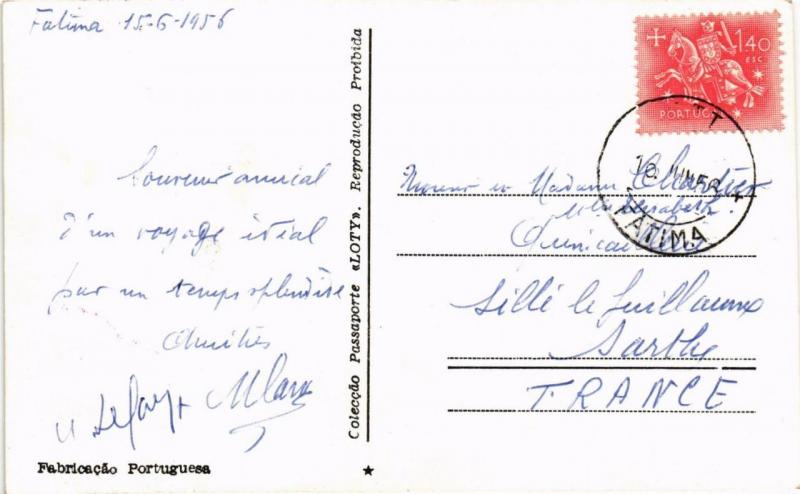 Fatima 15-6-1956
Souvenir amical
d'un voyage idéal
par un temps splendide
Amitiés
Fabricação Portuguesa
Colecção Passaporte «LOTY». Reprodução Proibida
1$40
ESC
PORTUGAL
CTT
FATIMA
Monsieur et Madame Chartier
Sillé le Guillaume
Sarthe
FRANCE